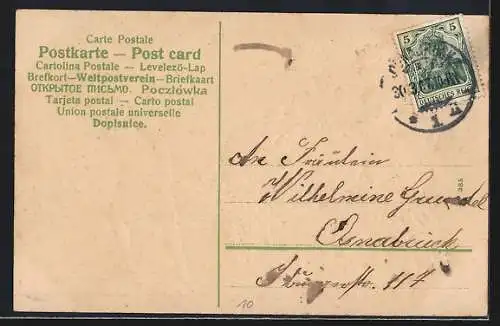 Carte Postale
Postkarte — Post card
Cartolina Postale — Levelező-Lap
Brefkort—Weltpostverein—Briefkaart
ОТКРЫТОЕ ПИСЬМО. Pocztówka
Tarjeta postal — Carto postal
Union postale universelle
Dopisnice.
5 5
DEUTSCHES REICH
20.3.
* 1
An Fräulein
Wilhelmine
Osnabrück
117
20